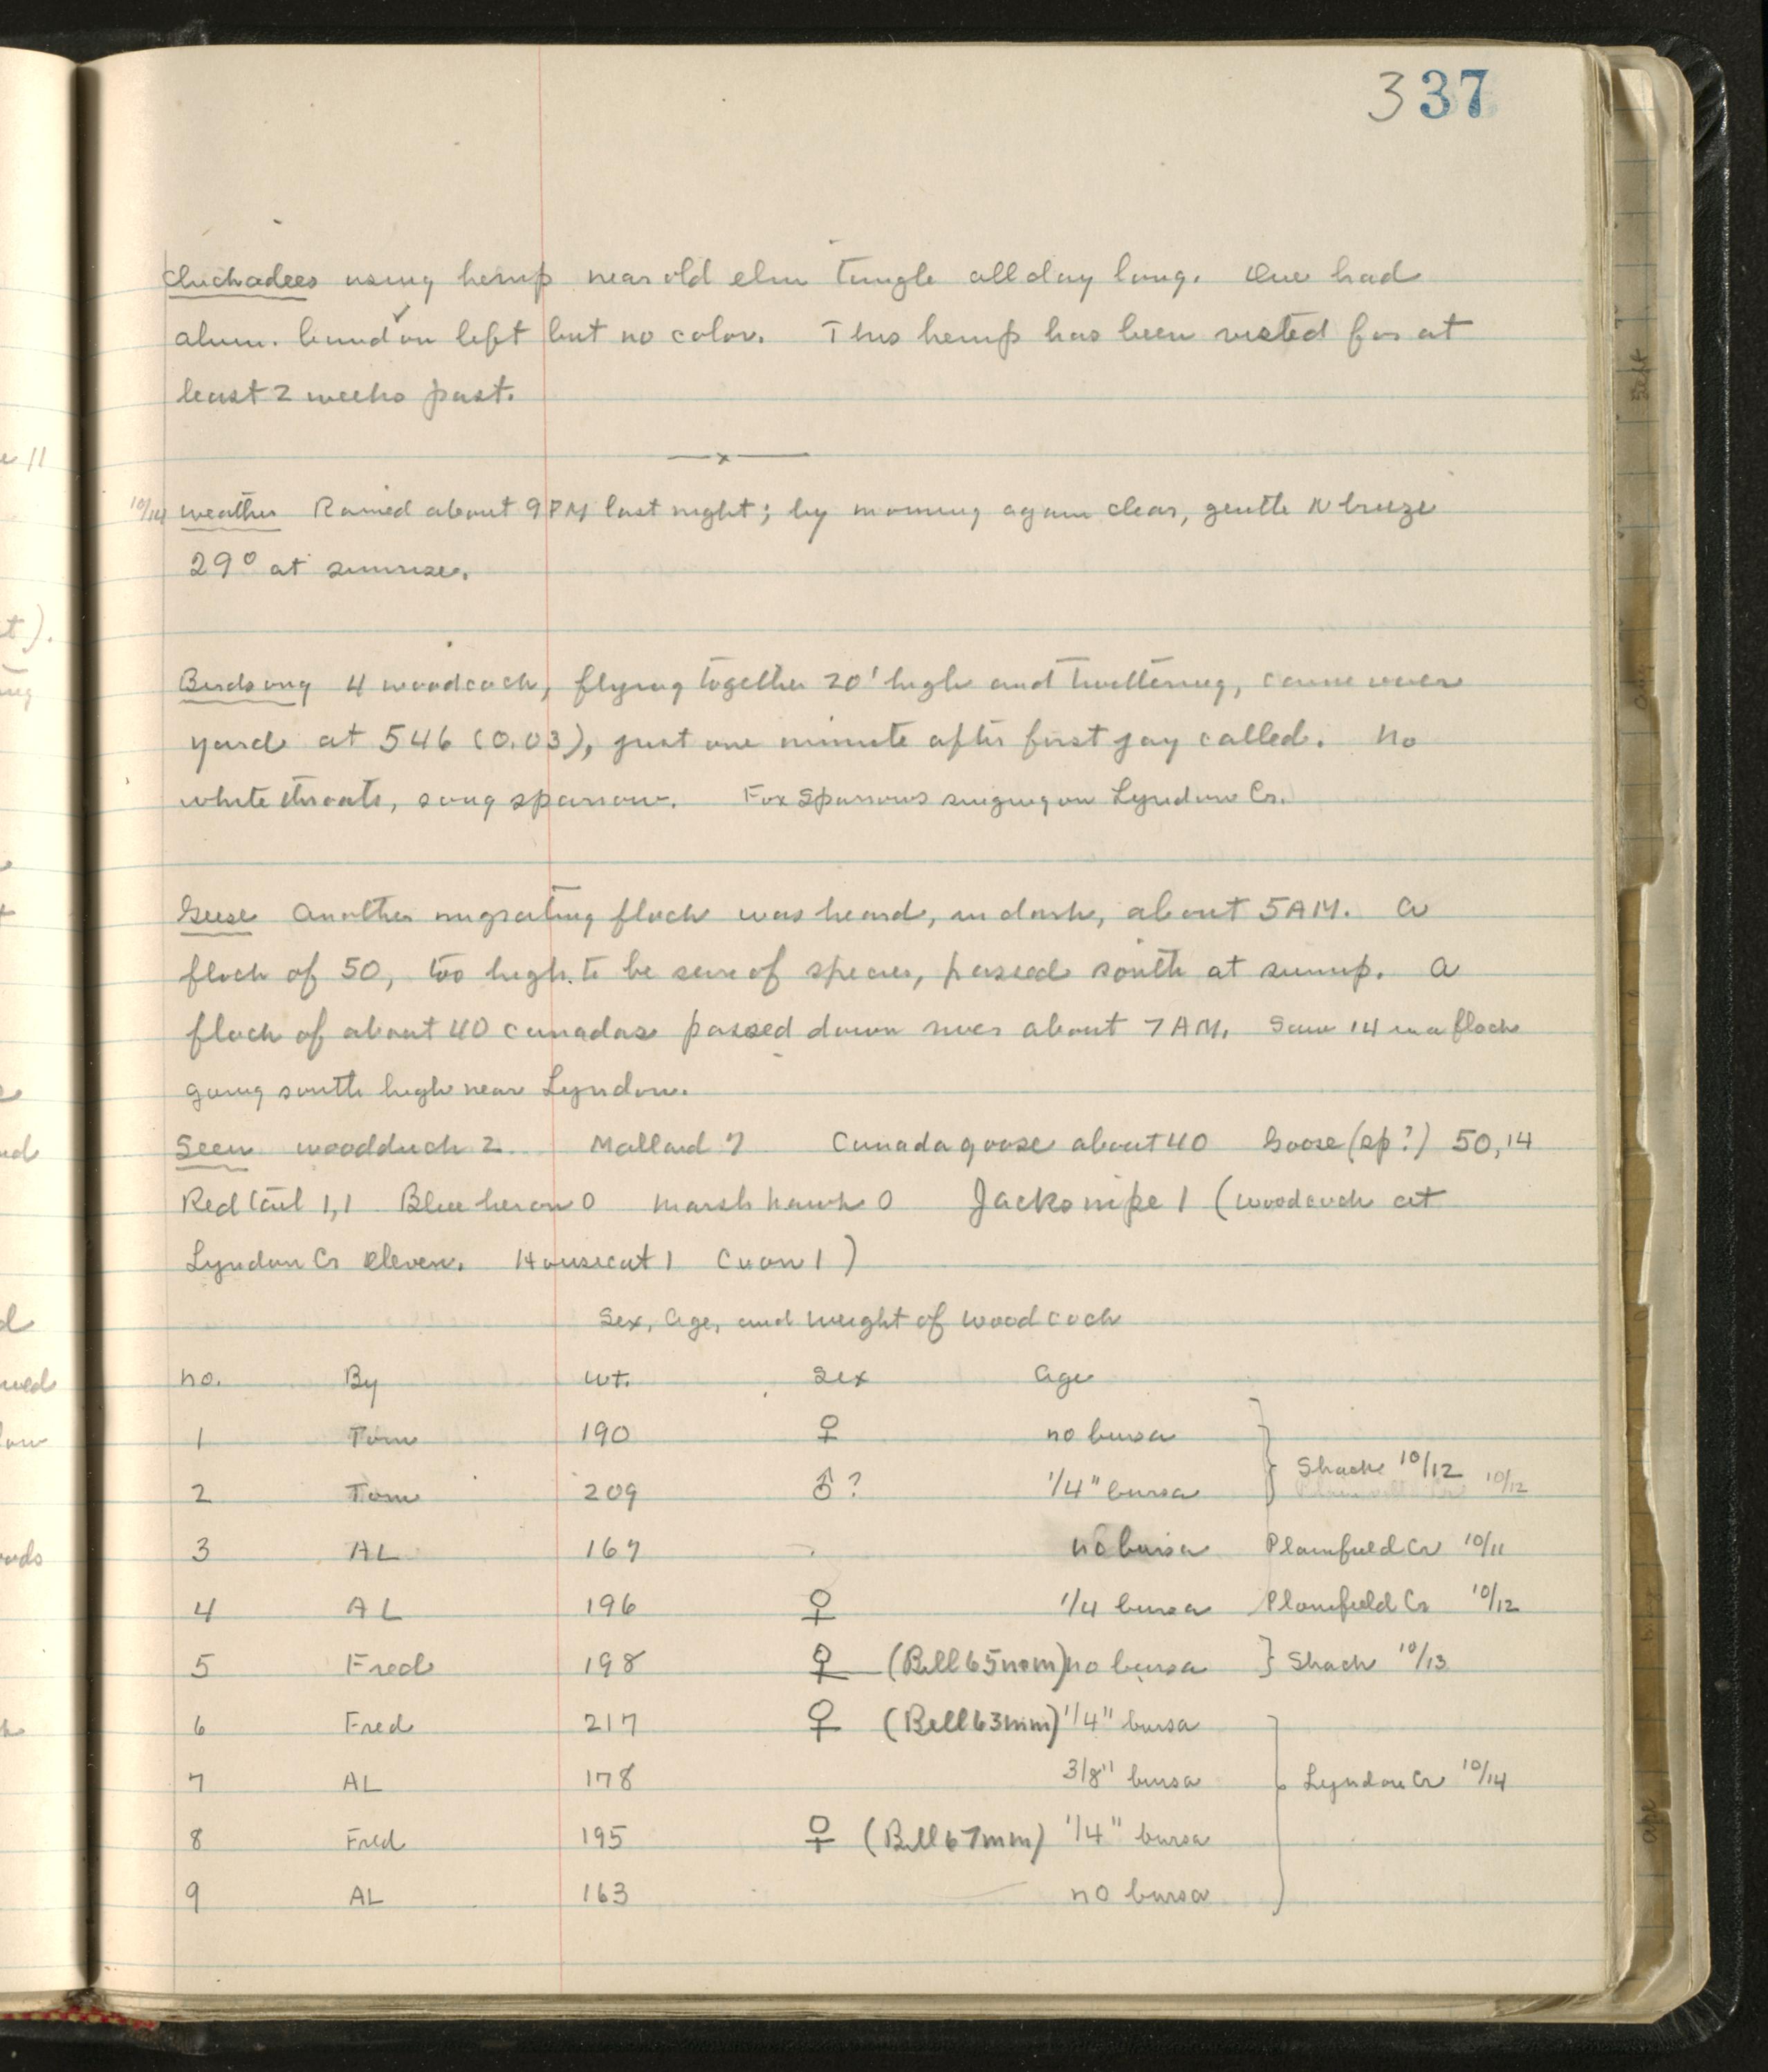 337
Chickadees using hemp near old elm tangle all day long. One had
alum. band on left but no color. This hemp has been visted for at
least 2 weeks past.
10/14 Weather Rained about 9 PM last night; by morning again clear, gentle N breeze
29° at sunrise.
Birdsong 4 woodcock, flying together 20' high and twittering, came over
yard at 546 (0.03), just one minute after first jay called. No
whitethroats, song sparrow. Fox Sparrows singing on Lyndon Cr.
Geese Another migrating flock was heard, in dark, about 5 AM. A
flock of 50, too high to be sure of species, passed south at sunup. A
flock of about 40 Canadas passed down river about 7 AM. Saw 14 in a flock
going south high near Lyndon.
Seen woodduck 2 Mallard 7 Canada goose about 40 Goose (sp?) 50, 14
Redtail 1,1 Blue heron 0 Marsh hawk 0 Jacksnipe 1 (Woodcock at
Lyndon Cr eleven. Housecat 1 Coon 1)
Sex, Age, and Weight of Woodcock
no. By wt. Sex Age
1 Tom 190 ♀ no bursa
2 Tom 209 ♂? 1/4" bursa } Shack 10/12 10/12
3 AL 167 no bursa Plainfield Cr 10/11
4 AL 196 ♀ 1/4 bursa Plainfield Cr 10/12
5 Fred 198 ♀ (Bill 65mm) no bursa } Shack 10/13
6 Fred 217 ♀ (Bill 63mm) 1/4" bursa
7 AL 178 3/8" bursa } Lyndon Cr 10/14
8 Fred 195 ♀ (Bill 67mm) 1/4" bursa
9 AL 163 no bursa